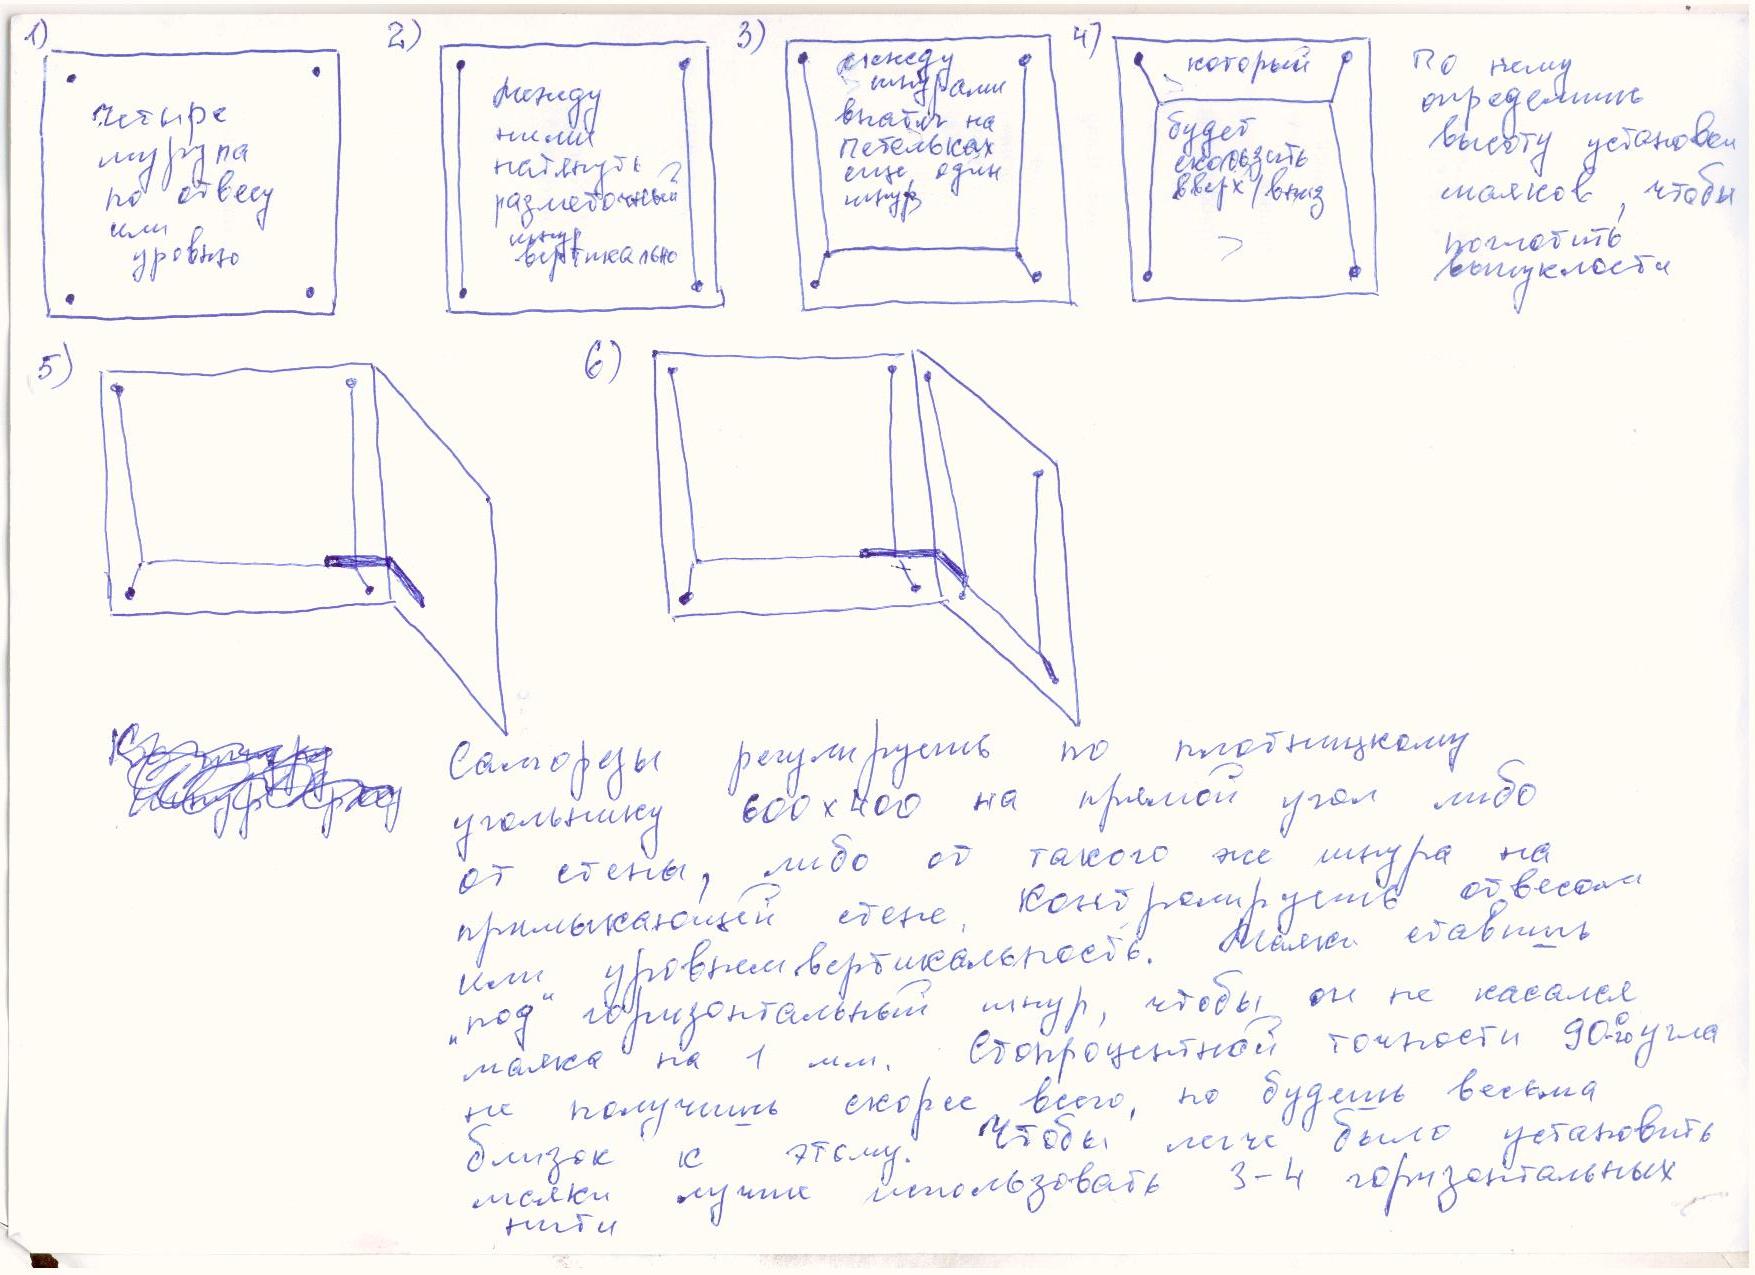 1)
Четыре
шурупа
по отвесу
или
уровню
2)
Между
ними
натянуть
разметочный
шнур
вертикально
3)
между
шнурами
внатяг на
петельках
еще один
шнур
4)
который
будет
скользить
вверх/вниз
По нему
определишь
высоту установки
маяков, чтобы
поглотить
выпуклости
5)
6)
Саморезы регулируешь по плотницкому
угольнику 600х400 на прямой угол либо
от стены, либо от такого же шнура на
примыкающей стене. Контролируешь отвесом
или уровнем вертикальность. Маяки ставишь
„под“ горизонтальный шнур, чтобы он не касался
маяка на 1 мм. Стопроцентной точности 90°-го угла
не получишь скорее всего, но будешь весьма
близок к этому. Чтобы легче было установить
маяки лучше использовать 3-4 горизонтальных
нити